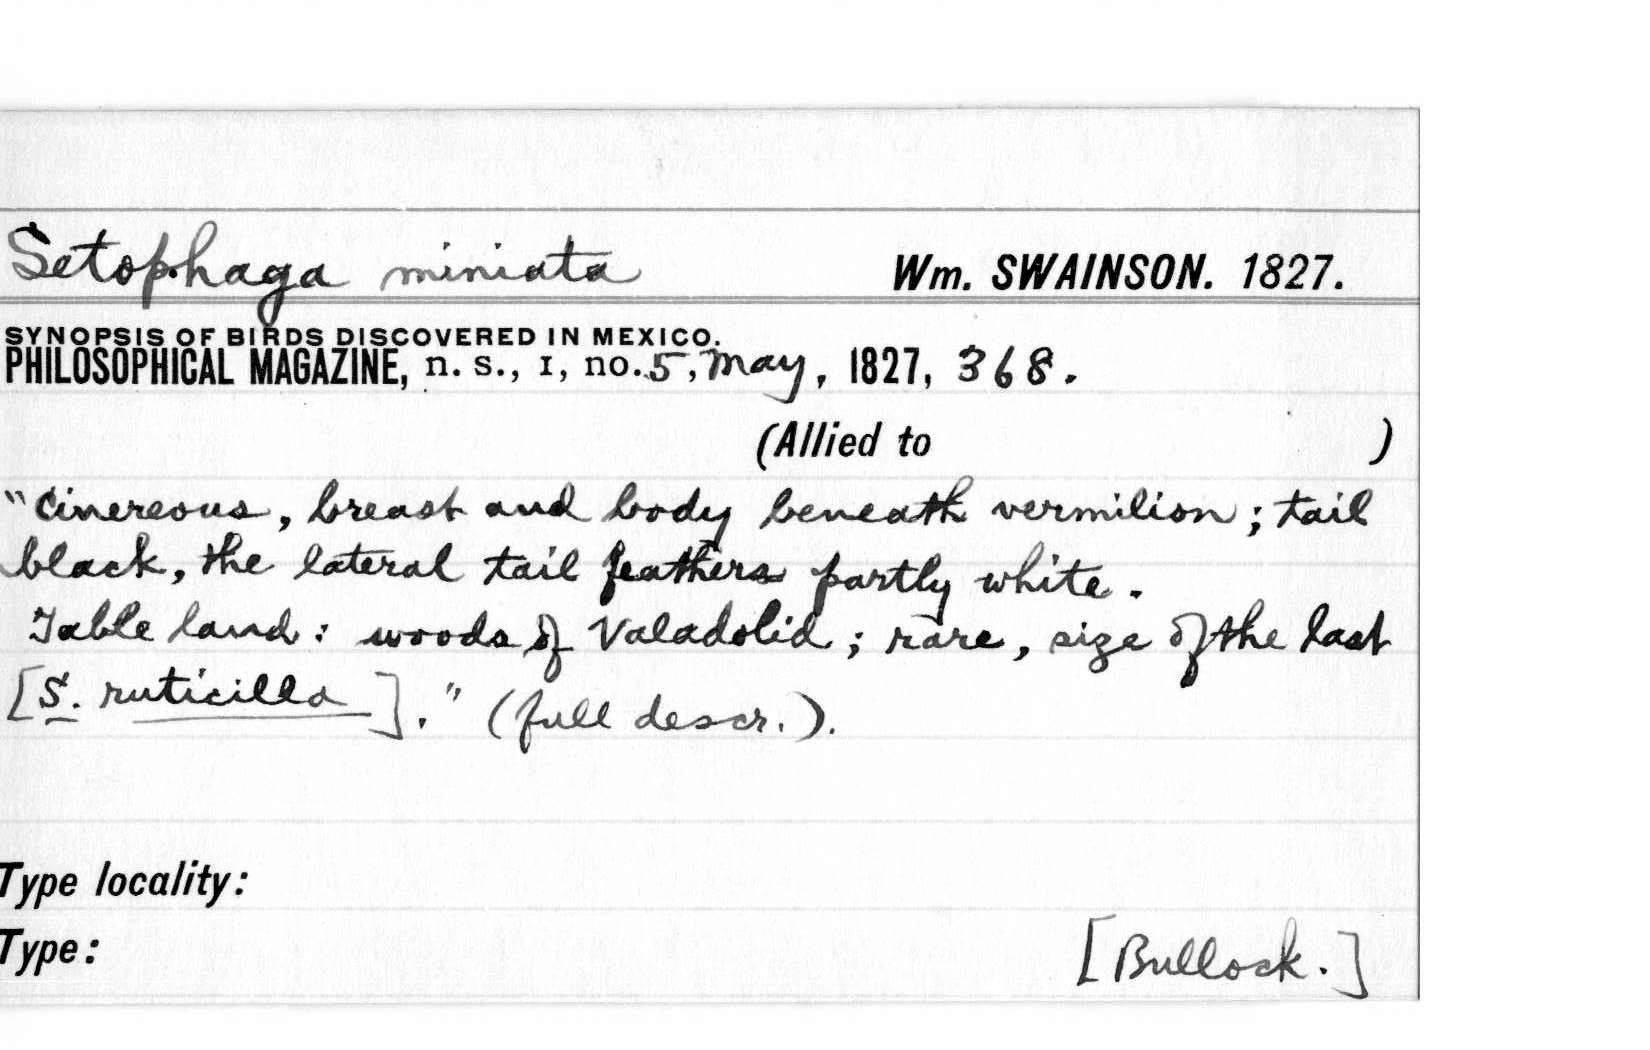 Setophaga miniata Wm. SWAINSON. 1827.
SYNOPSIS OF BIRDS DISCOVERED IN MEXICO.
PHILOSOPHICAL MAGAZINE, n. s., I, no. 5, May, 1827, 368.
(Allied to )
"Cinereous, breast and body beneath vermilion; tail
black, the lateral tail feathers partly white.
Table land: woods of Valadolid; rare, size of the last
[S. ruticilla]." (full descr.).
Type locality:
Type: [Bullock.]